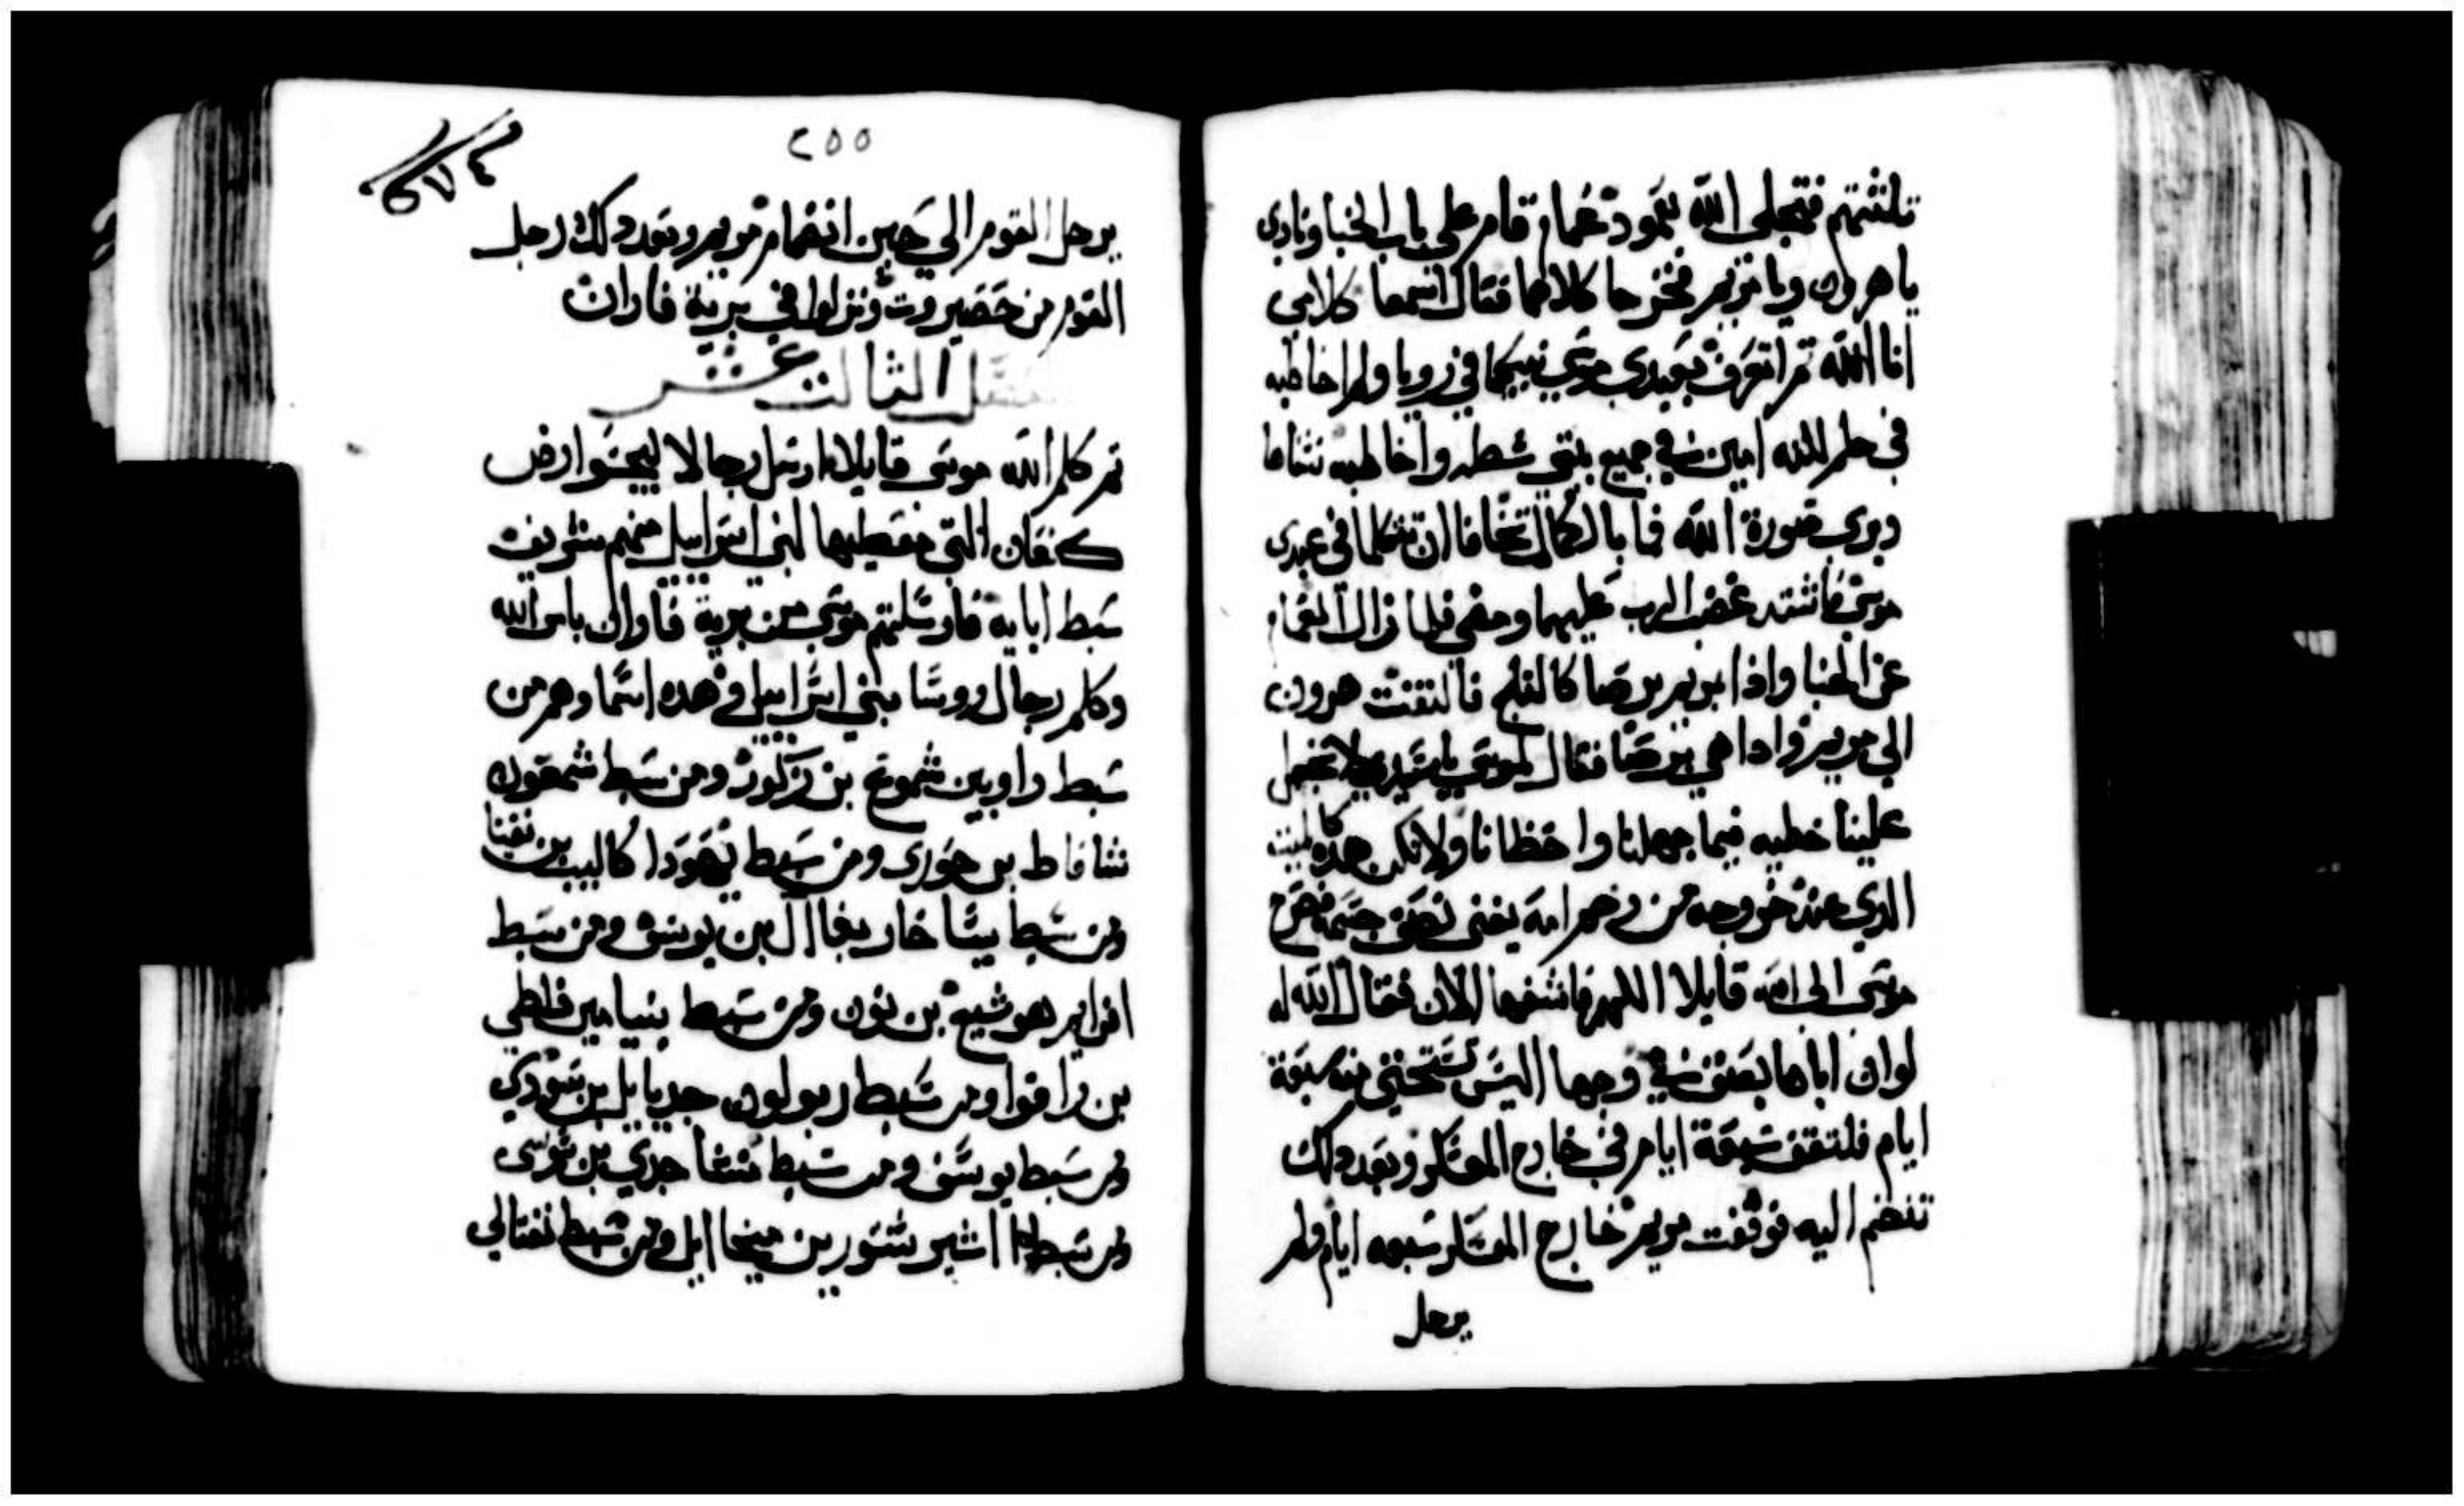 ثلثتهم فتجلى الله بعمود غمام قام على باب الخبا ونادى
يا هرون ويا مريم فخرجا كلاهما فقال اسمعا كلامى
انا الله
فى حلم
ويرى صورة الله فما بالكما لم تخافا ان تتكلما فى عبدى
موسى فاشتد غضب الرب عليهما ومضى فلما زال الغمام
عن الخبا واذا مريم برصا كالثلج فالتفت هرون
الي مريم واذا هي برصا فقال لموسى يا سيدي لا تجعل
علينا خطيه فيما جهلنا واخطانا ولا تكن هده كالميت
الدي عند خروجه من رحم امه يفنى نصف جسمه فصرخ
موسى الى الله قايلا اللهم فاشفها الان فقال الله له
لو ان اباها بصق في وجهها اليس تستحيي منه سبعة
ايام فلتقف سبعة ايام في خارج المعسكر وبعد دلك
تنضم اليه فوقفت مريم خارج المعسكر سبعه ايام ولم
يرحل
٢٥٥
يرحل القوم الي حين انضمام مريم وبعد دلك رحل
القوم من حصيروت ونزلوا في برية فاران
الفصل الثالث عشر
ثم كلم الله موسى قايلا ارسل رجالا ليجسوا ارض
كنعان التي معطيها لبني اسراييل منهم شريف
سبط ابايه فارسلهم موسى من برية فاران بامر الله
وكلهم رجال روسا بني اسراييل وهده اسماوهم من
سبط راوبين شموع بن زكور ومن سبط شمعون
شافاط بن حوري ومن سبط يهودا كاليب بن يفنا
ومن سبط يسا خار يغاال بن يوسف ومن سبط
افرايم هوشيع بن نون ومن سبط بنيامين فلطي
بن رافوا ومن سبط زبولون جديايل بن سودي
ومن سبط يوسف ومن سبط منشا جدي بن سوسى
ومن سبط اشير ستور بن ميخاايل ومن سبط نفتالي